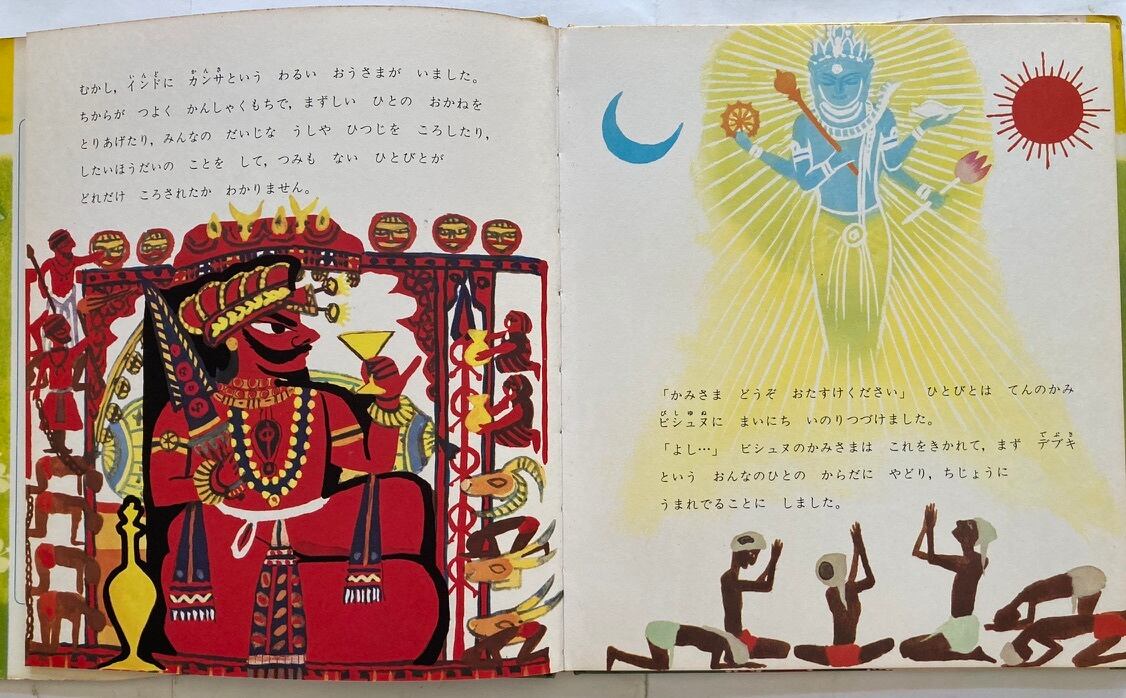 むかし，インドに　カンサという　わるい　おうさまが　いました。
ちからが　つよく　かんしゃくもちで，まずしい　ひとの　おかねを
とりあげたり，みんなの　だいじな　うしや　ひつじを　ころしたり，
したいほうだいの　ことを　して，つみも　ない　ひとびとが
どれだけ　ころされたか　わかりません。
「かみさま　どうぞ　おたすけください」　ひとびとは　てんのかみ
ビシュヌに　まいにち　いのりつづけました。
「よし…」　ビシュヌのかみさまは　これをきかれて，まず　デブキ
という　おんなのひとの　からだに　やどり，ちじょうに
うまれでることに　しました。